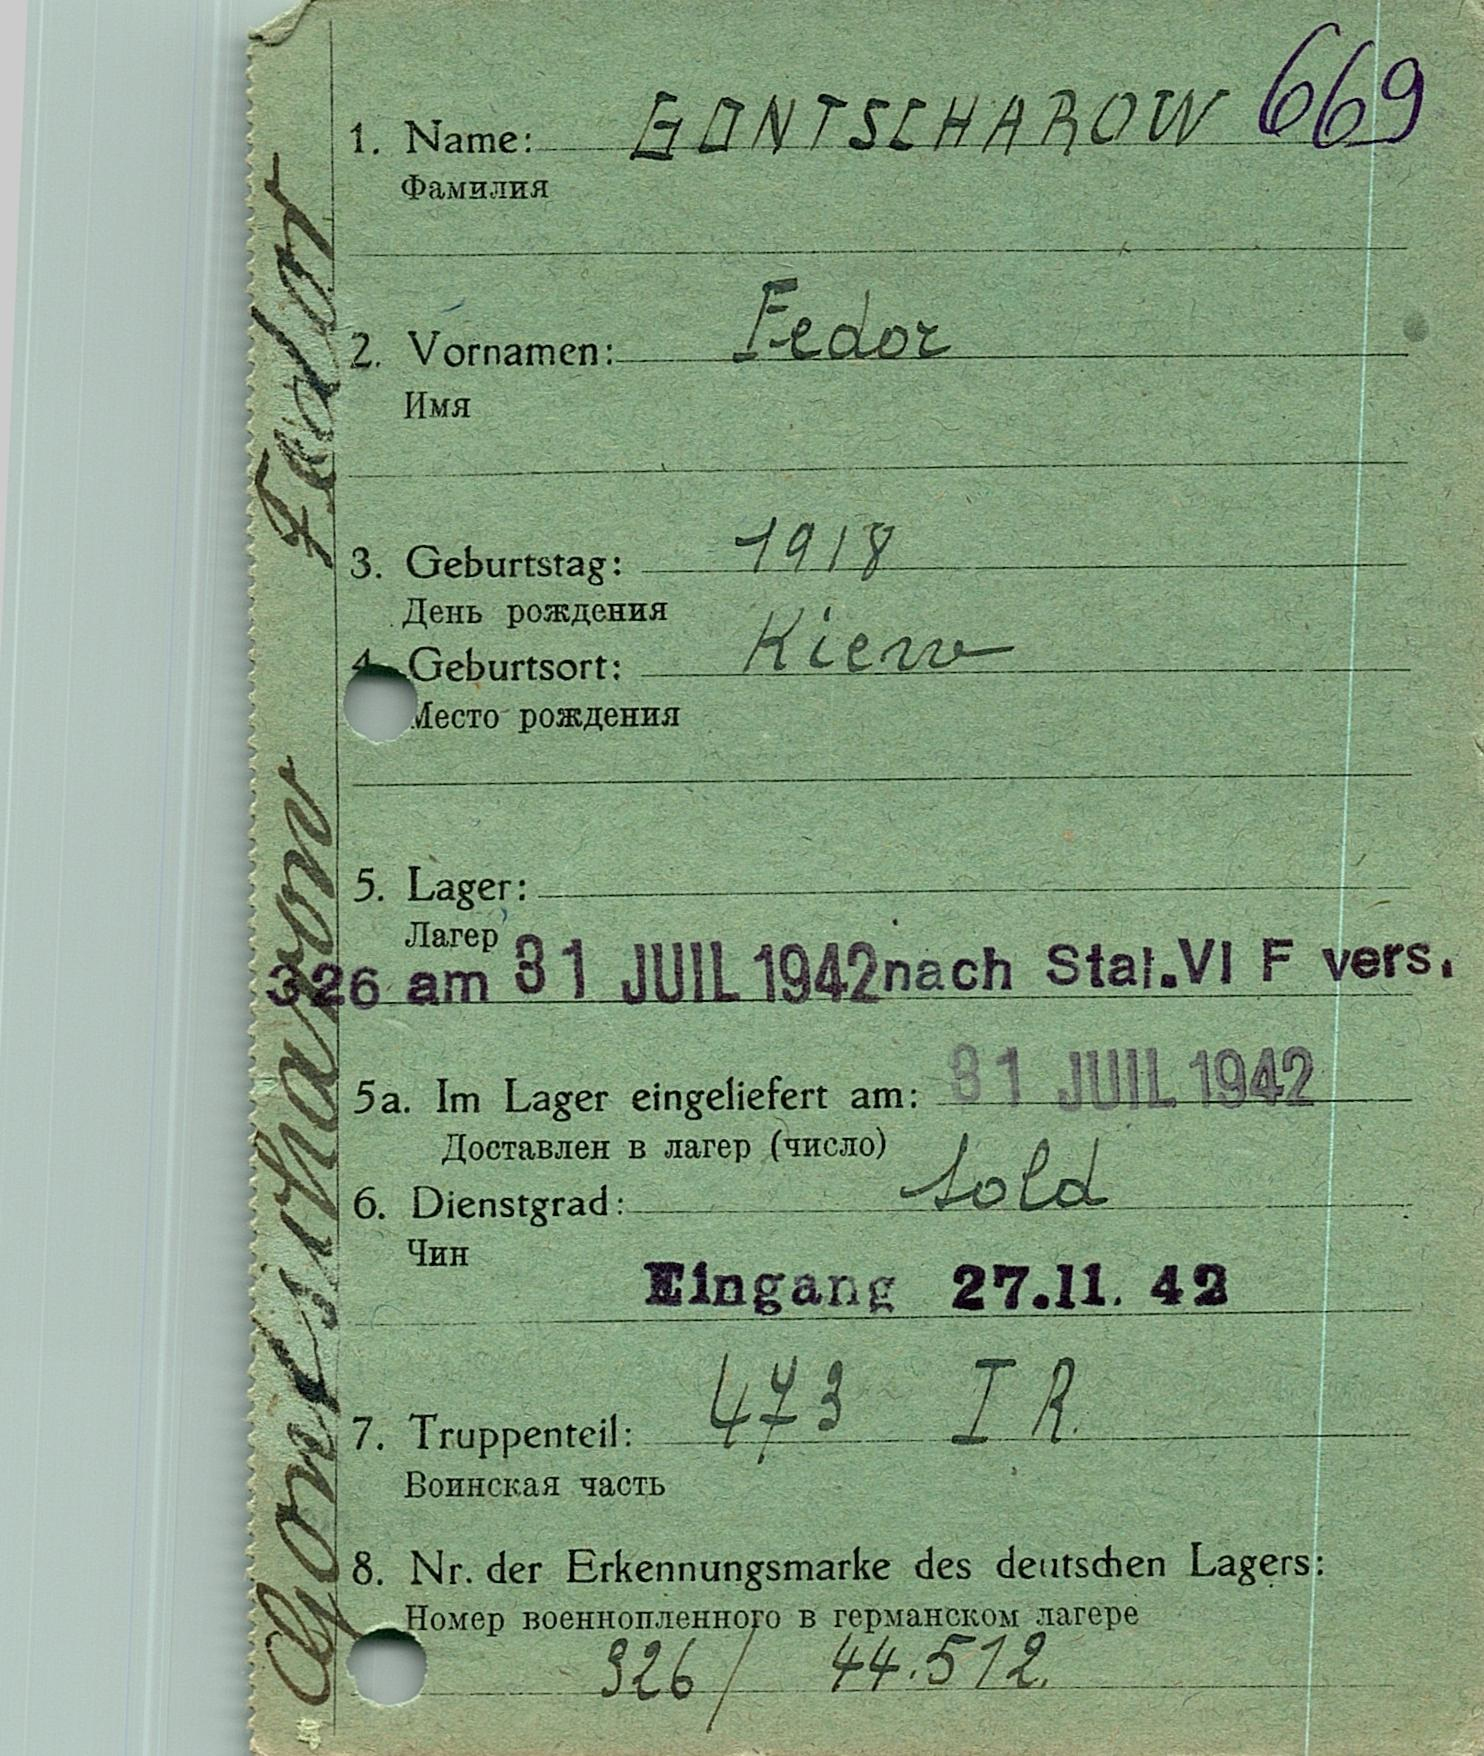 669
1. Name: GONTSCHAROW
Фамилия
2. Vornamen: Fedor
Имя
3. Geburtstag: 1918
День рождения
4. Geburtsort: Kiew
Место рождения
5. Lager:
Лагер
326 am 31 JUIL 1942 nach Stal. VI F vers.
5a. Im Lager eingeliefert am: 31 JUIL 1942
Доставлен в лагер (число)
6. Dienstgrad: Sold
Чин
Eingang 27.11. 42
7. Truppenteil: 473 I R.
Воинская часть
8. Nr. der Erkennungsmarke des deutschen Lagers:
Номер военнопленного в германском лагере
326/ 44.512.
Gontscharow Fedor